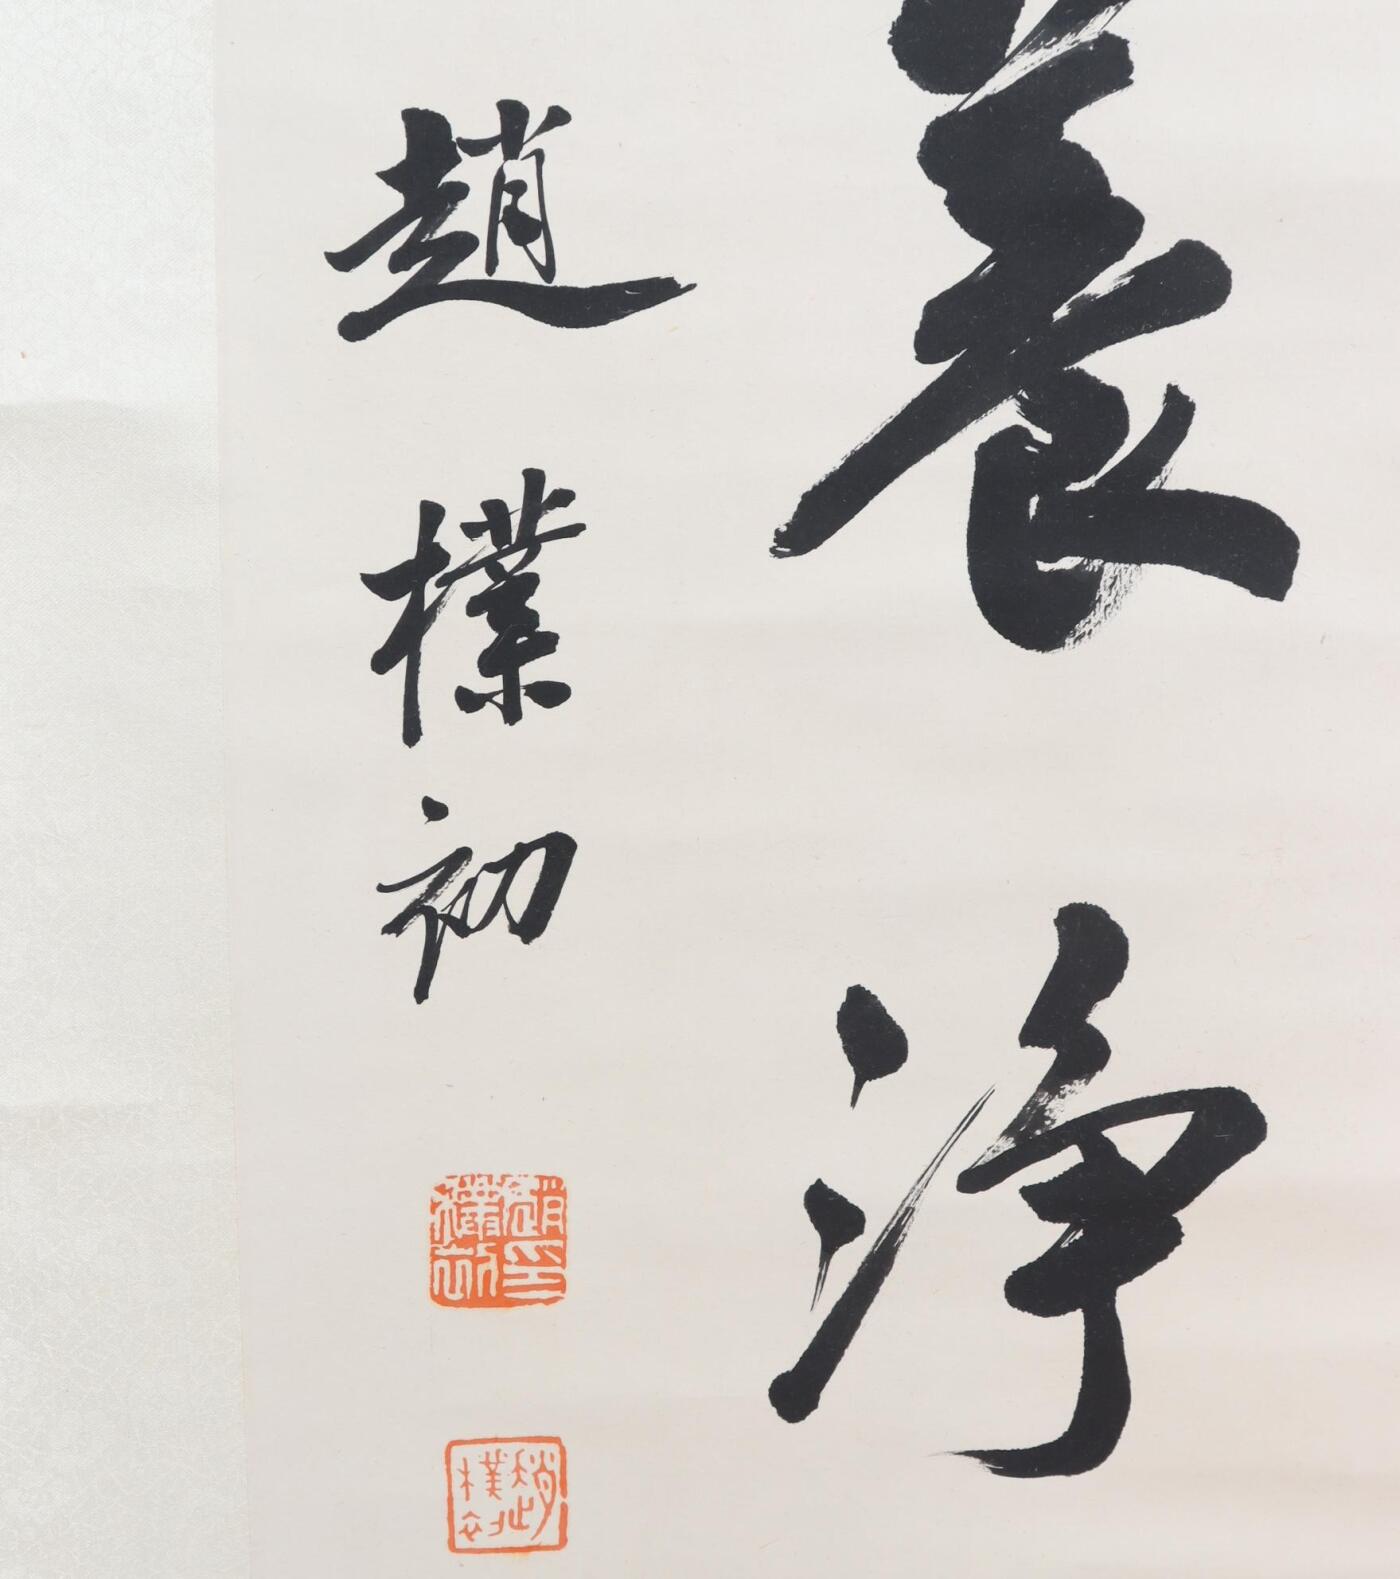 養淨
趙樸初
趙印樸初
趙樸初